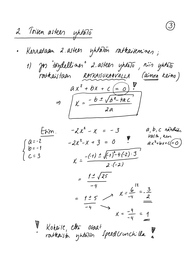 3
2 Toisen asteen yhtälö
• Kerrataan 2. asteen yhtälön ratkaiseminen:
1) Jos "täydellinen" 2. asteen yhtälö, niin yhtälö
ratkaistaan RATKAISUKAAVALLA (ainoa keino)
ax² + bx + c = 0 !
⇒ x = -b ± √b² - 4ac / 2a
Esim. -2x² - x = -3
a = -2
b = -1
c = 3
-2x² - x + 3 = 0
a, b, c
kun
ax² + bx + c = 0
x = -(-1) ± √(-1)² - 4·(-2)·3 / 2·(-2)
= 1 ± √25 / -4
= 1 ± 5 / -4
x = 6 / -4 = -3/2
x = -4 / -4 = 1
! Kokeile, että osaat
ratkaista yhtälön SpeedCrunchilla !